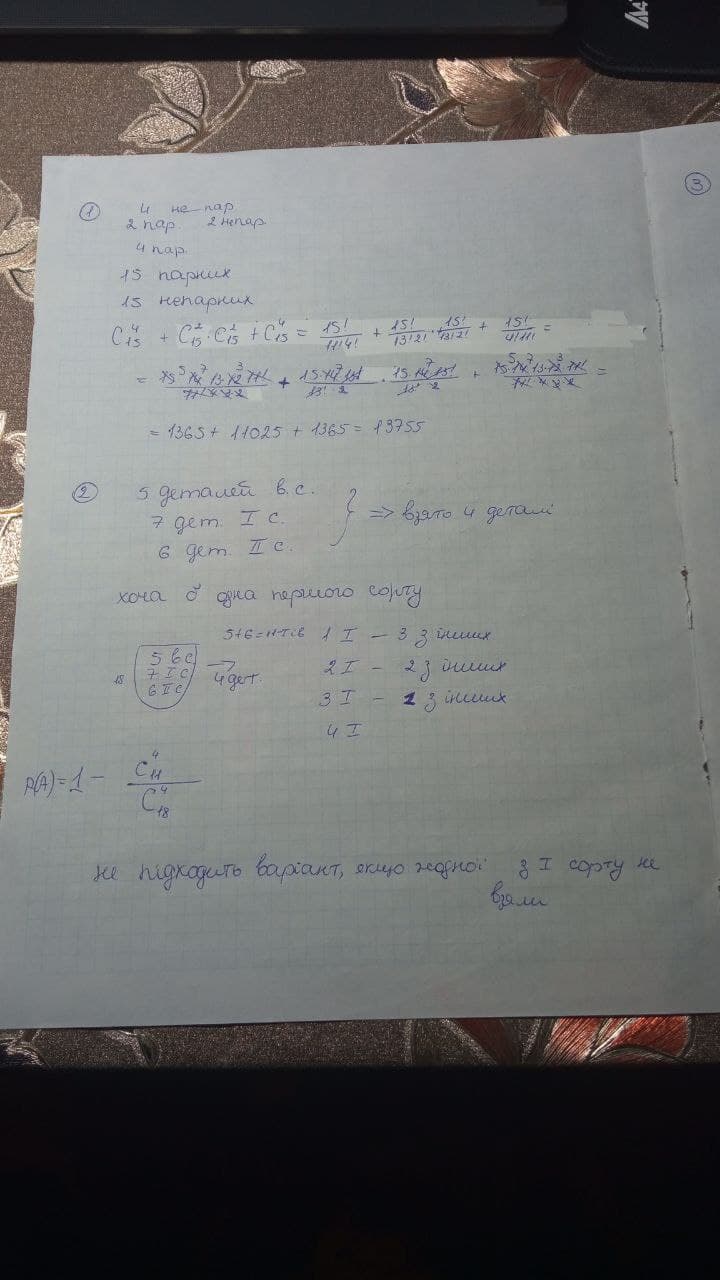 1
4 не пар
2 пар. 2 непар.
4 пар.
15 парних
15 непарних
C₁₅⁴ + C₁₅² · C₁₅² + C₁₅⁴ = 15!/11!4! + 15!/13!2! · 15!/13!2! + 15!/4!11! =
= 15·14·13·12·11!/11!·4·3·2 + 15·14·13!/13!·2 · 15·14·13!/13!·2 + 15·14·13·12·11!/11!·4·3·2 =
= 1365 + 11025 + 1365 = 13755
2
5 деталей в.с.
7 дет. I с.
6 дет. II с.
} => взято 4 деталі
хоча б одна першого сорту
18
5 вс
7 I с
6 II с
→
4 дет.
5+6=11
1 I – 3 з інших
2 I – 2 з інших
3 I – 1 з інших
4 I
P(A) = 1 – C₁₁⁴/C₁₈⁴
не підходить варіант, якщо жодної з I сорту не
взяли
3